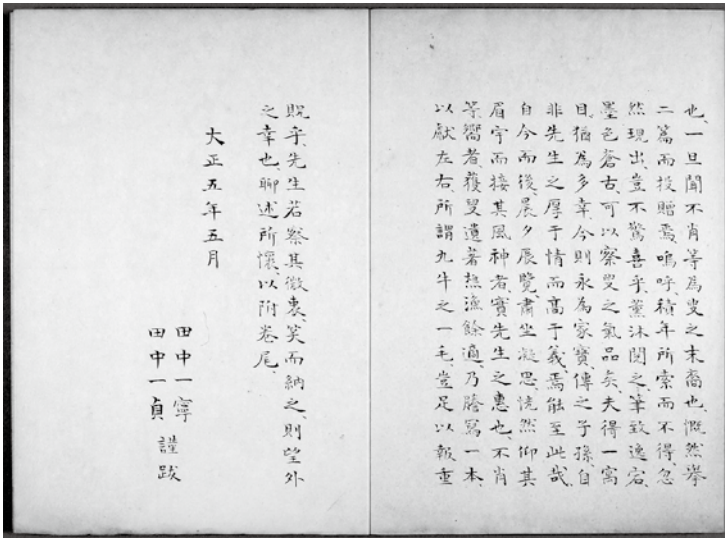 也、一旦聞不肖等為叟之末裔也、慨然挙
二篇而投贈焉、嗚呼、積年所索而不得、忽
然現出、豈不驚喜乎、薫沐閲之、筆致逸宕、
墨色蒼古、可以察叟之気品矣、夫得一寓
目、猶為多幸、今則永為家寳、傳之子孫、自
非先生之厚于情而髙于義、焉能至此哉、
自今而後、晨夕展覧、肅坐凝思、恍然仰其
眉宇而接其風神者、實先生之惠也、不肖
等嚮者、獲叟遺著 漁餘適、乃謄寫一本、
以獻左右、所謂九牛之一毛、豈足以報重
貺乎、先生若察其微衷、笑而納之、則望外
之幸也、聊述所懐、以附巻尾、
大正五年五月
田中一寧
田中一貞 謹跋